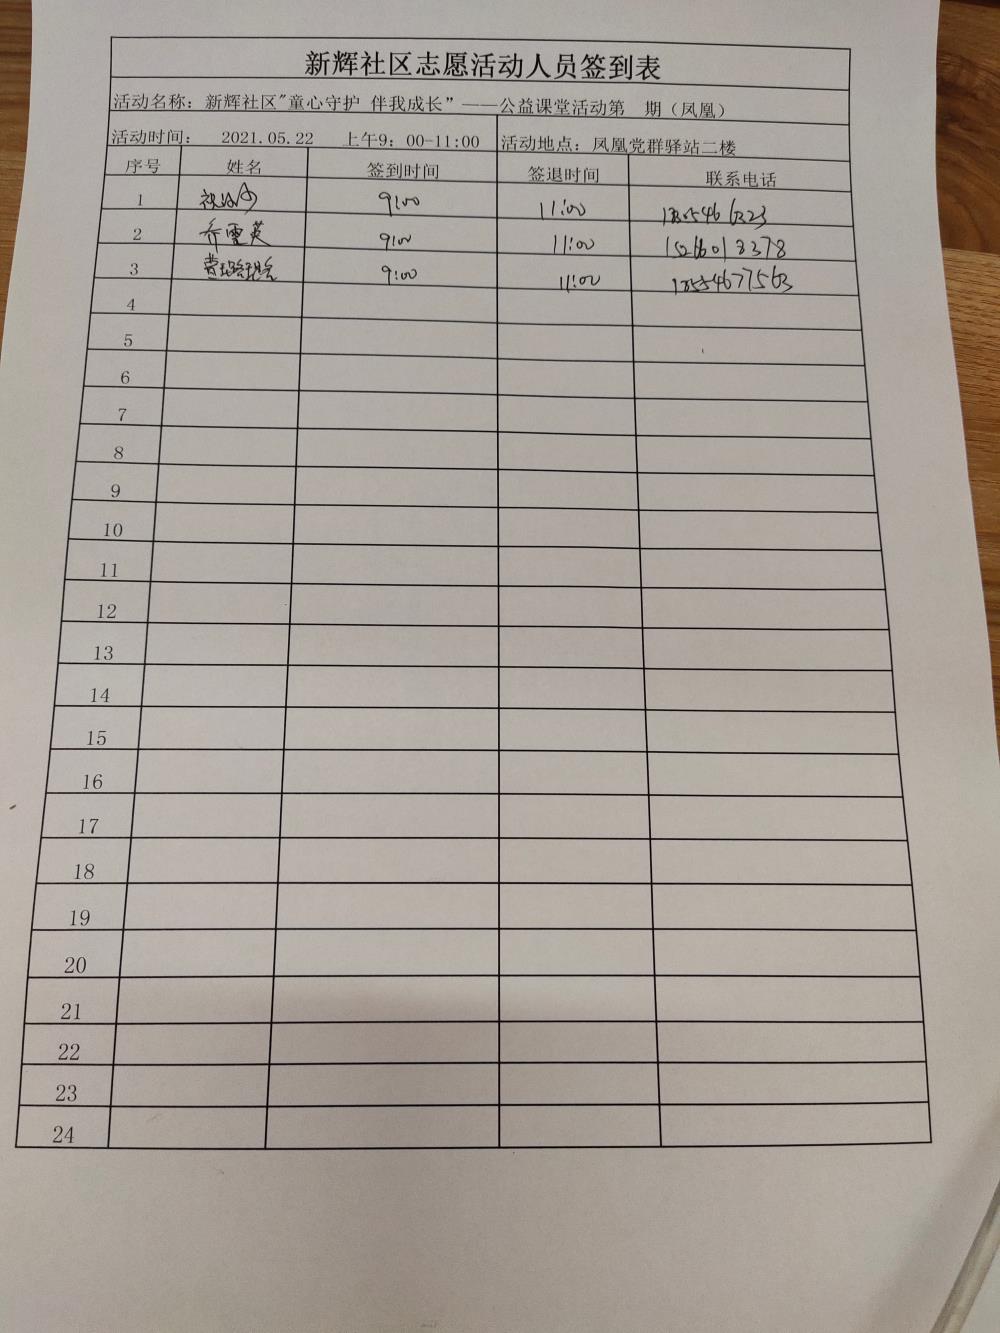 新辉社区志愿活动人员签到表
活动名称：新辉社区"童心守护 伴我成长"——公益课堂活动第 期（凤凰）
活动时间： 2021.05.22 上午9：00-11:00 活动地点：凤凰党群驿站二楼
序号 姓名 签到时间 签退时间 联系电话
1 9:00 11:00
2 乔雪英 9:00 11:00 15266018378
3 9:00 11:00 13554677563
4
5
6
7
8
9
10
11
12
13
14
15
16
17
18
19
20
21
22
23
24